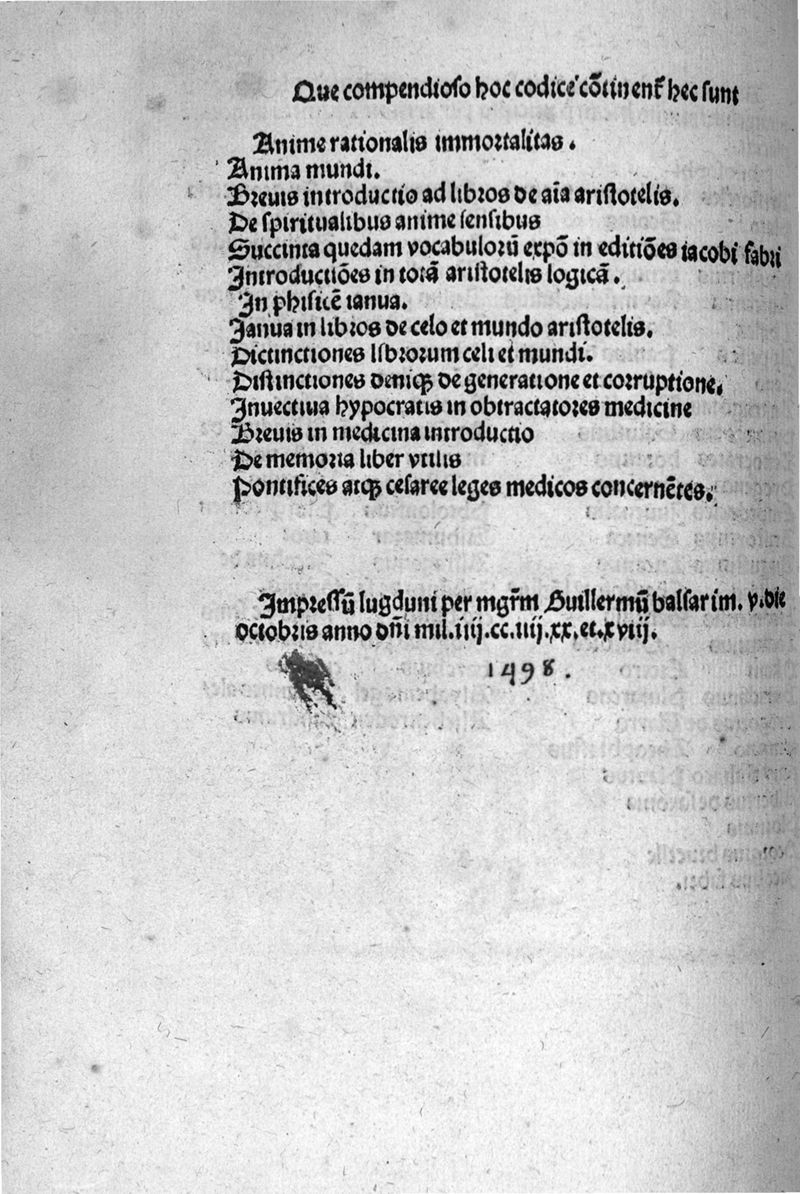 Que compendioso hoc codice cōtinent̄ hec sunt
Anime rationalis immortalitas.
Anima mundi.
Brevis introductio ad libros de aīa aristotelis.
De spiritualibus anime sensibus
Succinta quedam vocabulorū expō in editiōes iacobi fabri
Introductiōes in totā aristotelis logicā.
In phisicē ianua.
Janua in libros de celo et mundo aristotelis.
Dictinctiones librorum celi et mundi.
Distinctiones deniqꝫ de generatione et corruptione.
Invectiva hypocratis in obtractatores medicine
Brevis in medicina introductio
De memoria liber vtilis
Pontifices atqꝫ cesaree leges medicos concernētes.
Impressū lugduni per mgr̄m Guillermū balsarim. v. die
octobris anno dn̄i mil.iiij.cc.iiij.xx.et.xviij.
1498.